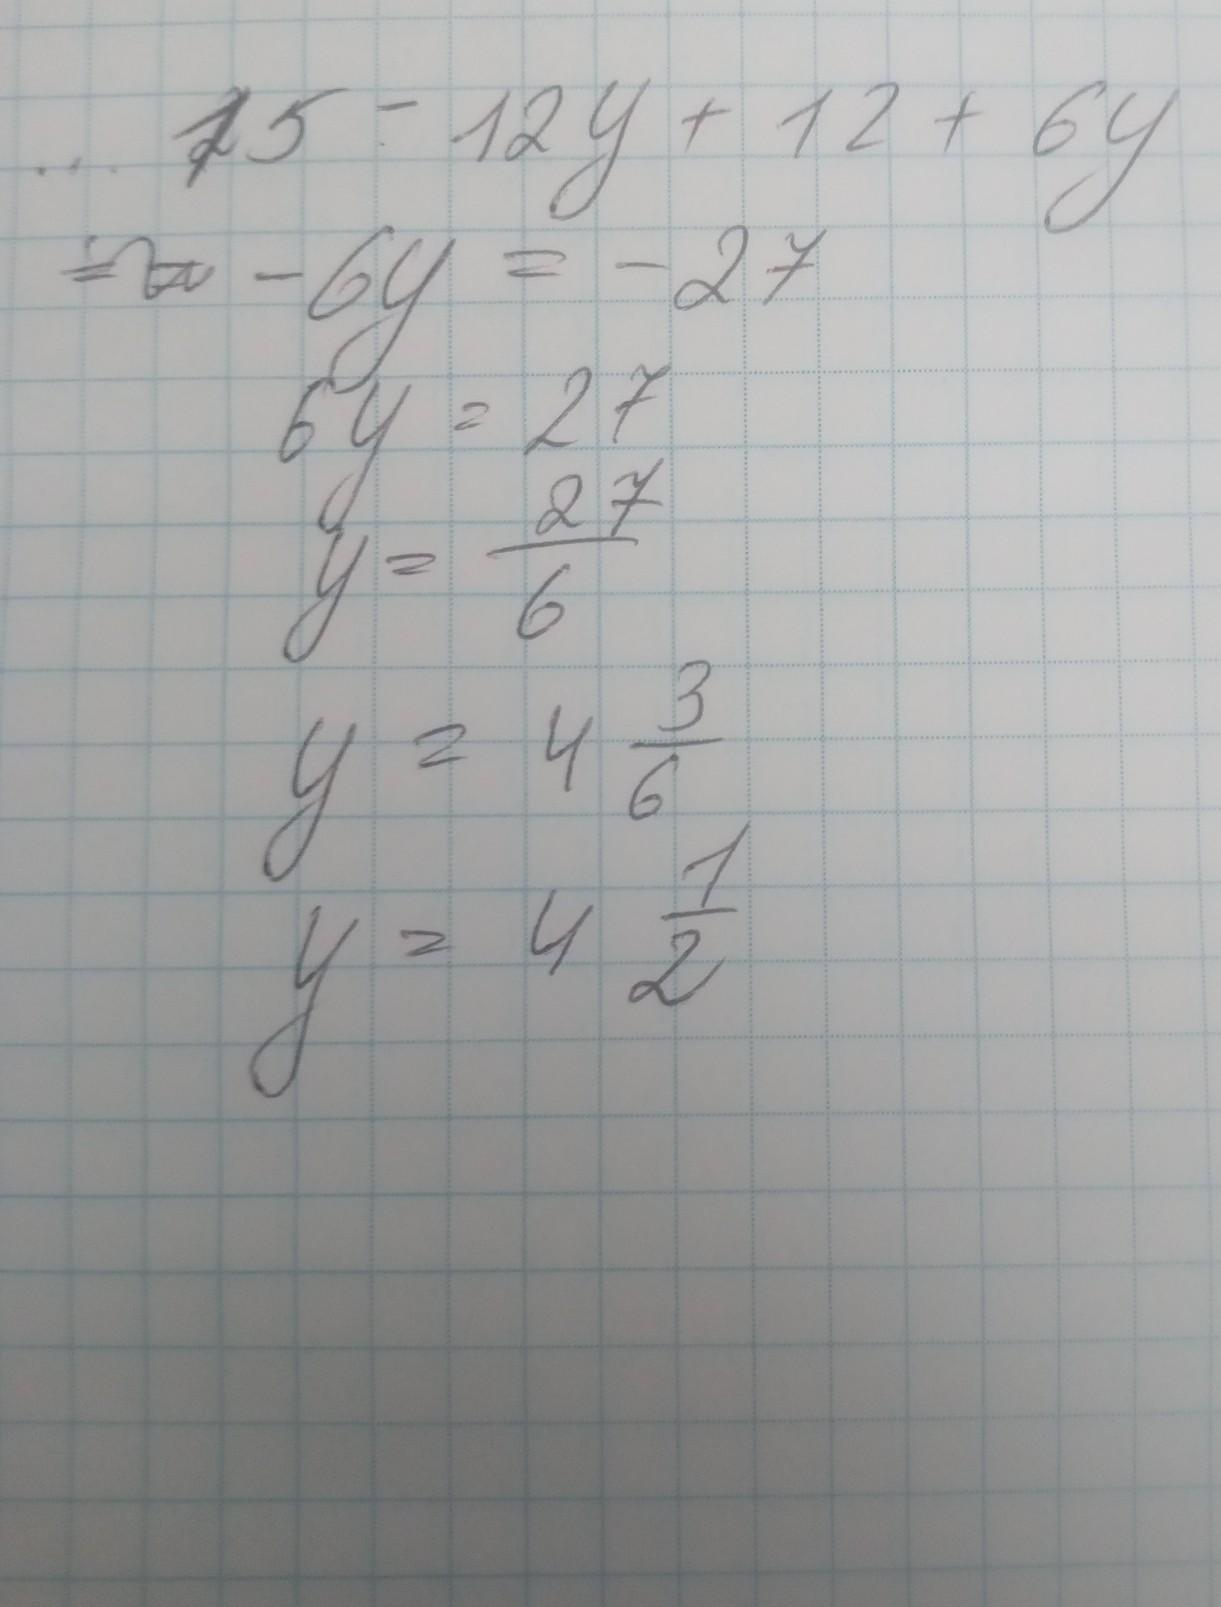 ... 15 - 12y + 12 + 6y
= - 6y = - 27
6y = 27
y = 27/6
y = 4 3/6
y = 4 1/2